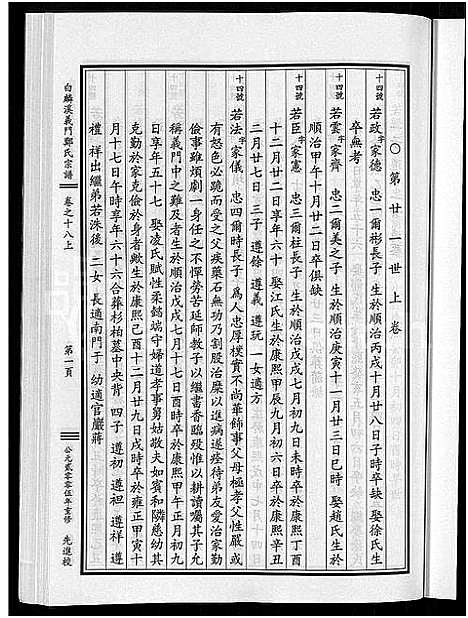 ○第廿一世上卷
十四號 若政 字家德 忠二爾彬長子 生於順治丙戌十月廿八日子時卒缺 娶徐氏生
卒無考
十四號 若雲 字家齊 忠二爾美之子 生於順治庚寅十一月廿三日巳時 娶趙氏生於
順治甲午十月廿二日卒俱缺
十四號 若臣 字家憲 忠三爾柱長子 生於順治戊戌七月初九日未時卒於康熙丁酉
十二月廿二日享年六十 娶江氏生於康熙甲辰九月初六日卒於康熙辛丑
二月廿七日 三子 遵餘 遵義 遵玩 一女適方
十四號 若法 字家儀 忠四爾時長子 爲人忠厚樸實不尚華飾事父母極孝父性嚴或
有怒色必跪而受之父疾藥石無功乃割股治糜以進病遂痊待弟友愛治家勤
儉事雖煩劇一身任之不憚勞苦延師教子以繼書香臨歿惟以耕讀囑其子允
稱義門中之雋及者生於順治戊戌七月十七日酉時卒於康熙甲午正月初九
日享年五十七 娶凌氏賦性柔懿端守婦道孝事舅姑敬夫如賓和隣慈幼其
克勤於家克儉於身者歟生於康熙己酉十二月廿九日戌時卒於雍正甲寅十
月十七日午時享年六十六合葬杉柏墓中央背 四子 遵初 遵袒 遵祥 遵
禮 祥出繼弟若洙後 二女 長適南門子 幼適官巖蔣
白麟溪義門鄭氏宗譜
卷之十八上
第一頁
公元貳零零伍年重修 先進校